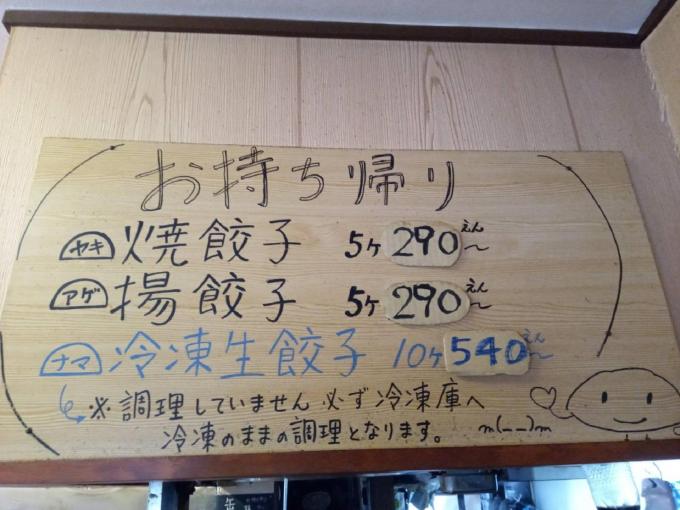 お持ち帰り
ヤキ 焼餃子 5ヶ 290えん〜
アゲ 揚餃子 5ヶ 290えん〜
ナマ 冷凍生餃子 10ヶ 540えん〜
※調理していません必ず冷凍庫へ
冷凍のままの調理となります。 m(--)m